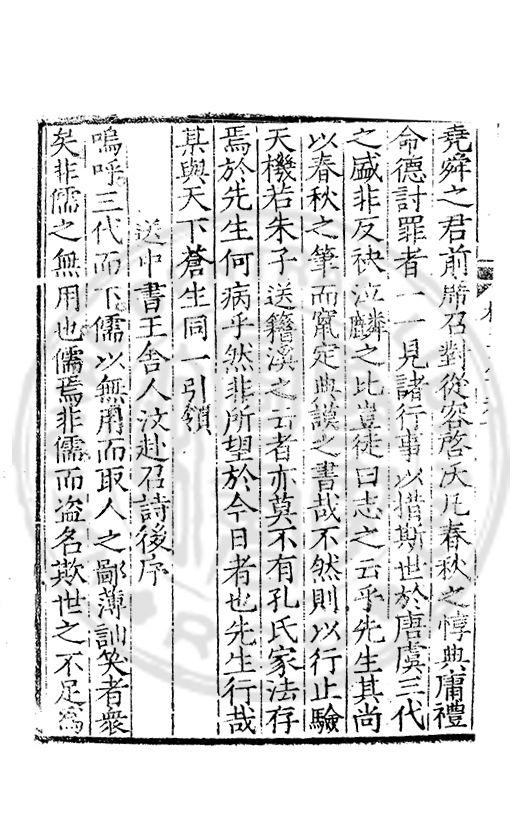 堯舜之君前席召對從容啓沃凡春秋之惇典庸禮
命德討罪者一一見諸行事以措斯世於唐虞三代
之盛非反袂泣麟之比豈徒曰志之云乎先生其尚
以春秋之筆而竄定典謨之書哉不然則以行止驗
天機若朱子送籍溪之云者亦莫不有孔氏家法存
焉於先生何病乎然非所望於今日者也先生行哉
某與天下蒼生同一引領
送中書王舍人汶赴召詩後序
嗚呼三代而下儒以無用而取人之鄙薄訕笑者衆
矣非儒之無用也儒焉非儒而盗名欺世之不足為